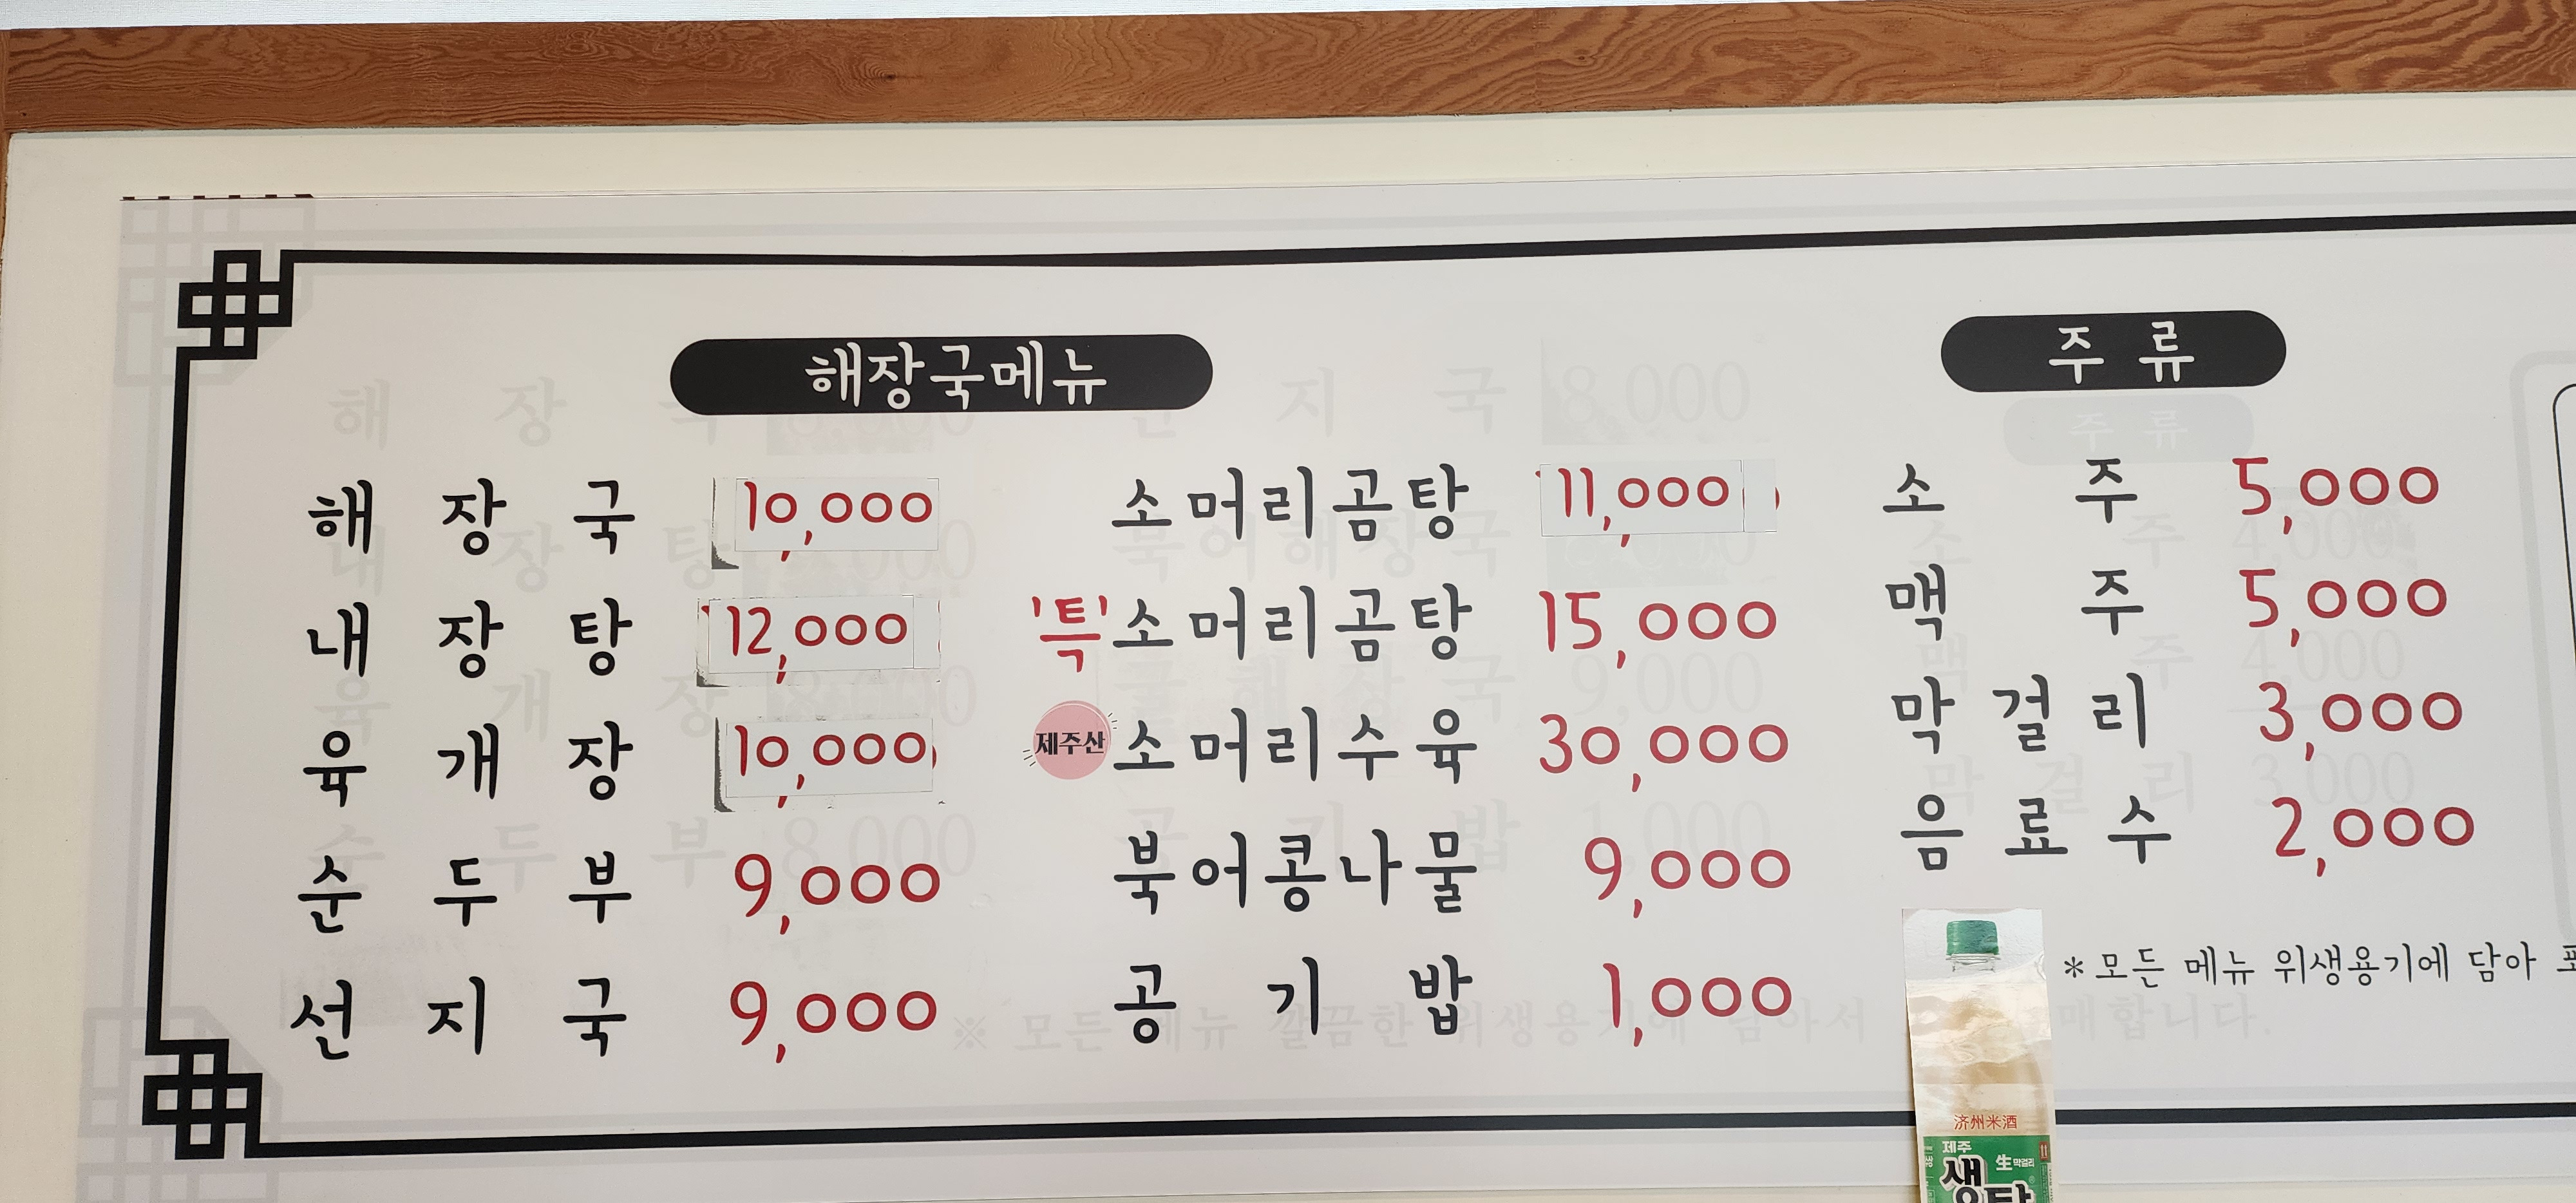 해장국메뉴
해장국 10,000
내장탕 12,000
육개장 10,000
순두부 9,000
선지국 9,000
소머리곰탕 11,000
'특' 소머리곰탕 15,000
제주산 소머리수육 30,000
북어콩나물 9,000
공기밥 1,000
주류
소주 5,000
맥주 5,000
막걸리 3,000
음료수 2,000
*모든 메뉴 위생용기에 담아
济州米酒
제주
生막걸리
생